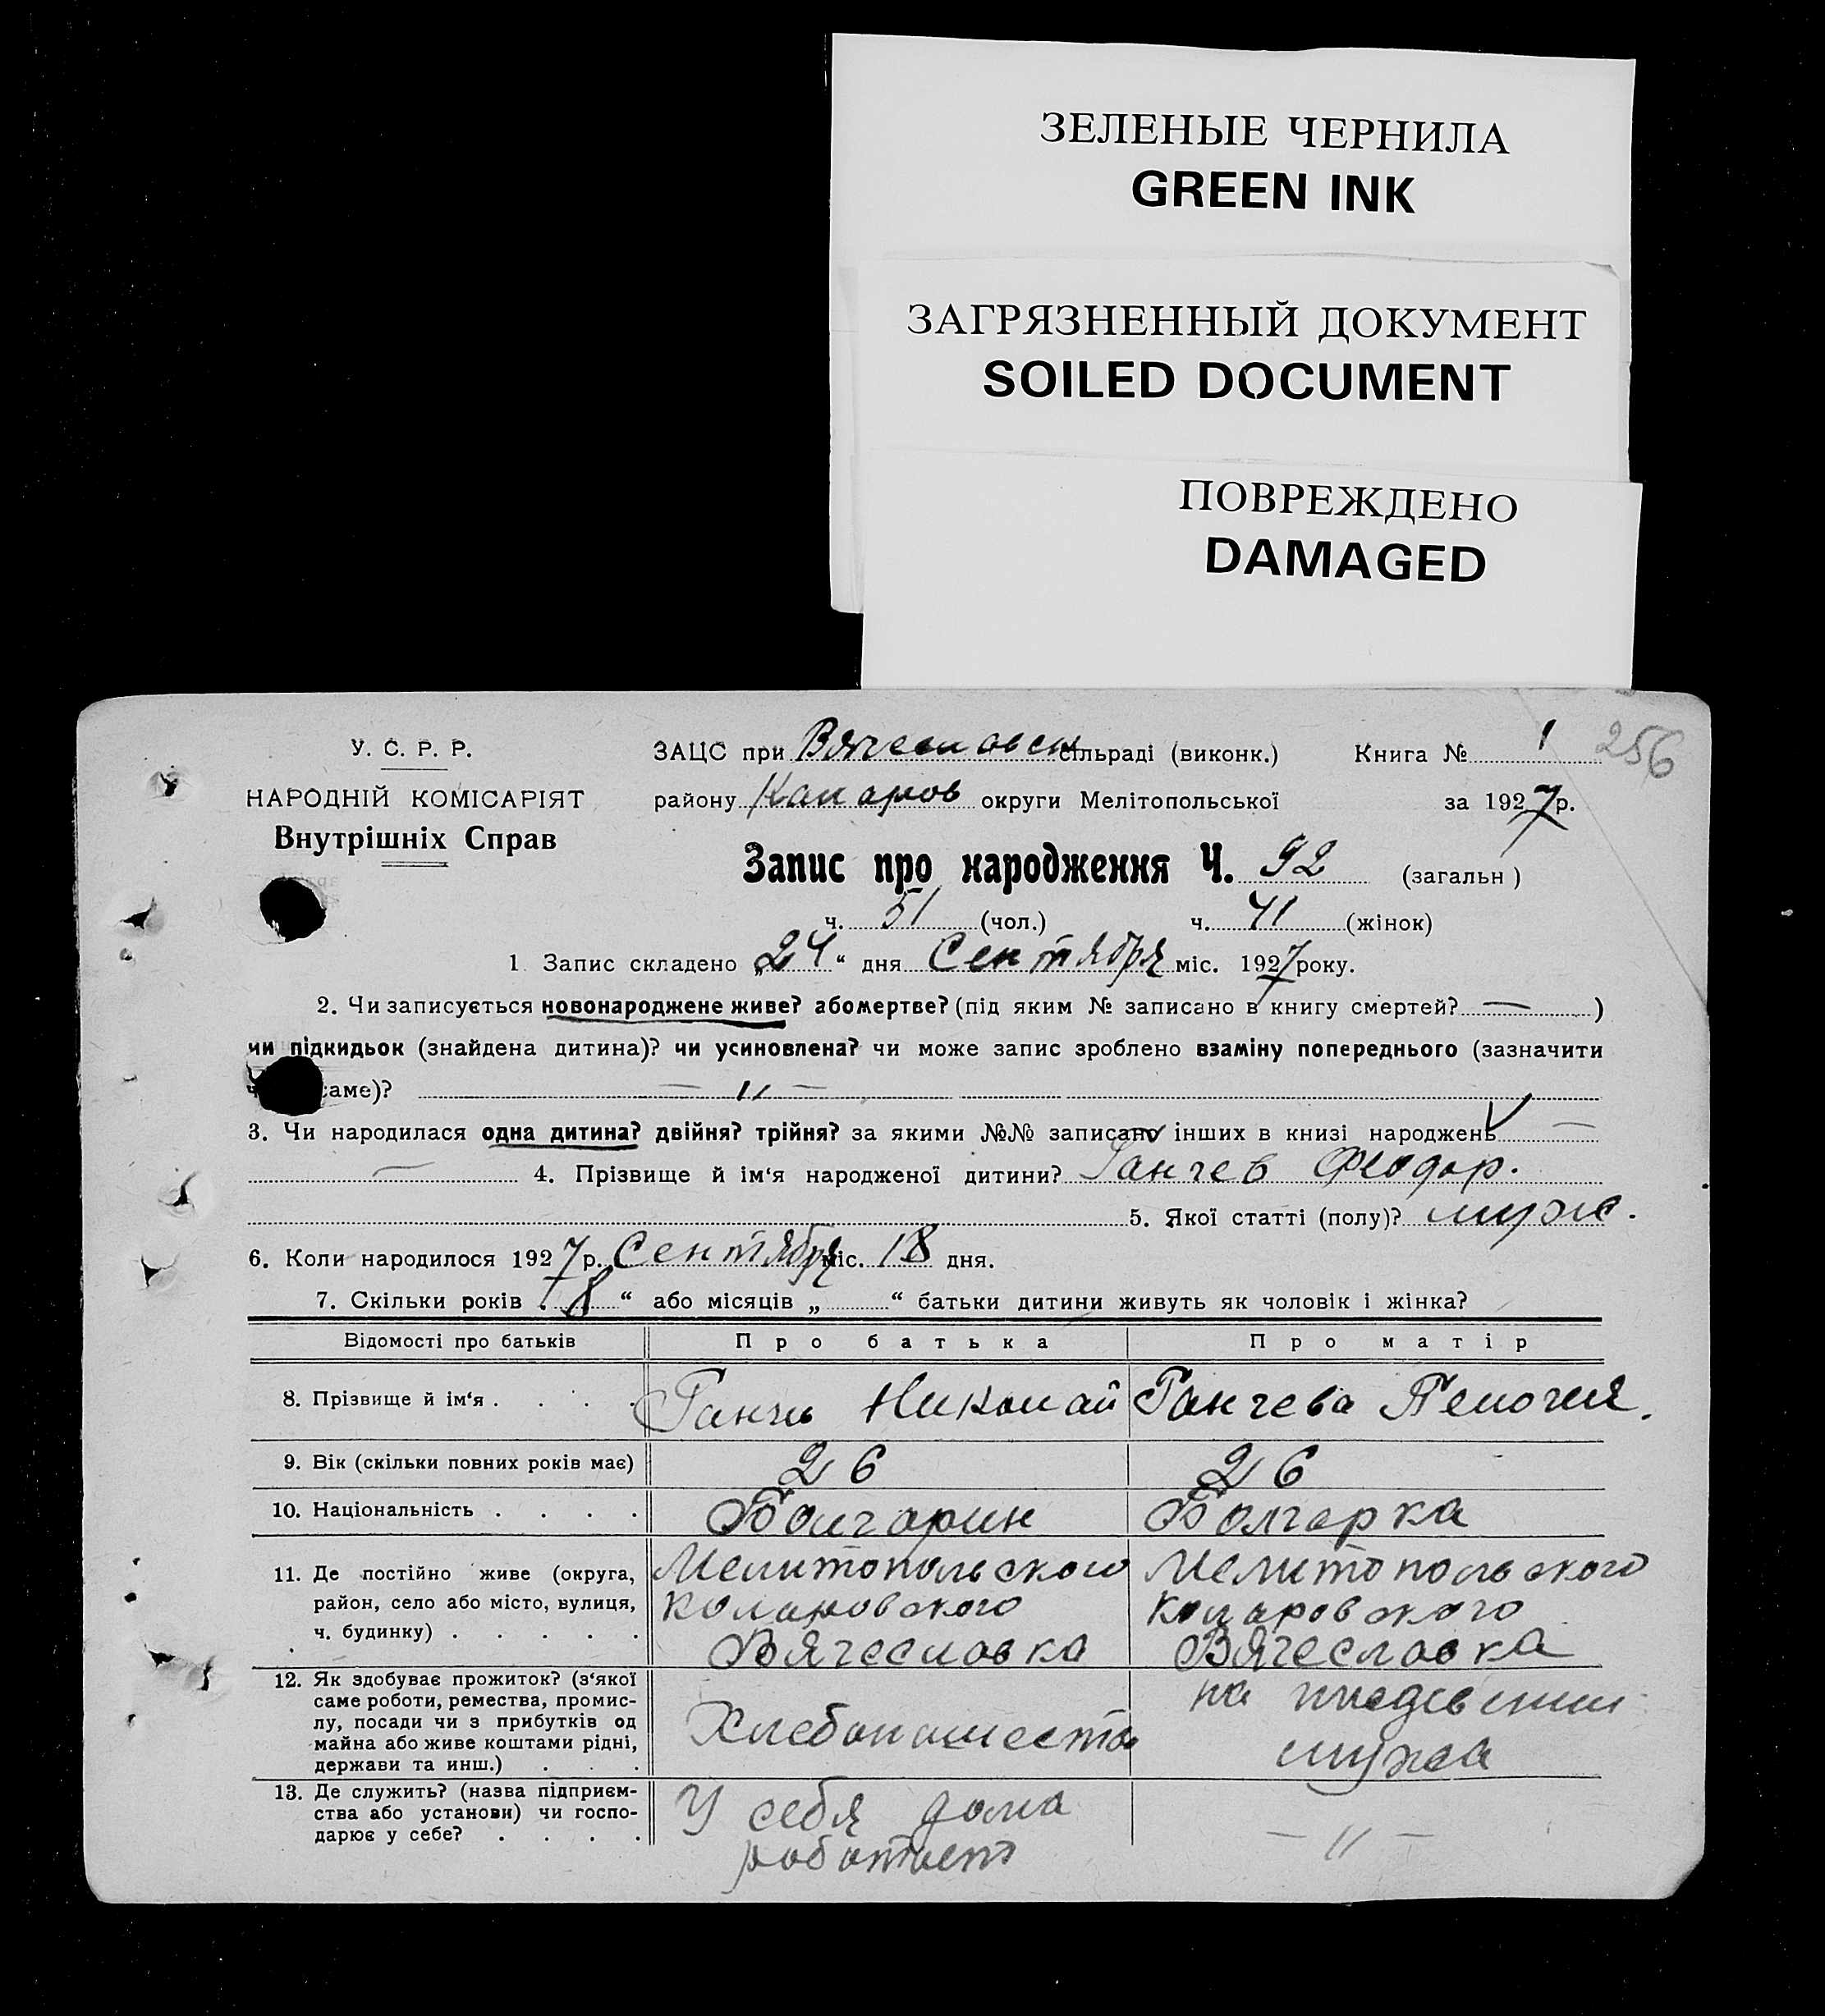 ЗЕЛЕНЫЕ ЧЕРНИЛА
GREEN INK
ЗАГРЯЗНЕННЫЙ ДОКУМЕНТ
SOILED DOCUMENT
ПОВРЕЖДЕНО
DAMAGED
У. С. Р. Р.
НАРОДНІЙ КОМІСАРІЯТ
Внутрішніх Справ
ЗАЦС при Вячеславск сільраді (виконк.) Книга № 1 256
району Каларов округи Мелітопольської за 1927 р.
Запис про народження Ч. 92 (загальн)
ч. 51 (чол.) ч. 41 (жінок)
1 Запис складено „24“ дня Сентября міс. 1927 року.
2. Чи записується новонароджене живе? або мертве? (під яким № записано в книгу смертей? — )
чи підкидьок (знайдена дитина)? чи усиновлена? чи може запис зроблено взаміну попереднього (зазначити
саме)? — 〃 —
3. Чи народилася одна дитина? двійня? трійня? за якими №№ записано інших в книзі народжень —
— 4. Прізвище й ім‘я народженої дитини? Ганчев Феодор.
5. Якої статті (полу)? муж.
6. Коли народилося 1927 р. Сентября міс. 18 дня.
7. Скільки років „8“ або місяців „ “ батьки дитини живуть як чоловік і жінка?
Відомості про батьків Про батька Про матір
8. Прізвище й ім‘я . . . . Ганчев Николай Ганчева
9. Вік (скільки повних років має) 26 26
10. Національність . . . . Болгарин Болгарка
11. Де постійно живе (округа, Мелитопольского Мелитопольского
район, село або місто, вулиця, Коларовского Коларовского
ч. будинку) . . . . . Вячеславка Вячеславка
12. Як здобуває прожиток? (з‘якої
саме роботи, ремества, промис-
лу, посади чи з прибутків од
майна або живе коштами рідні,
держави та инш.) . . . Хлебопашество на иждевении мужа
13. Де служить? (назва підприєм-
ства або установи) чи госпо-
дарює у себе? . . . . У себя дома работает — 〃 —